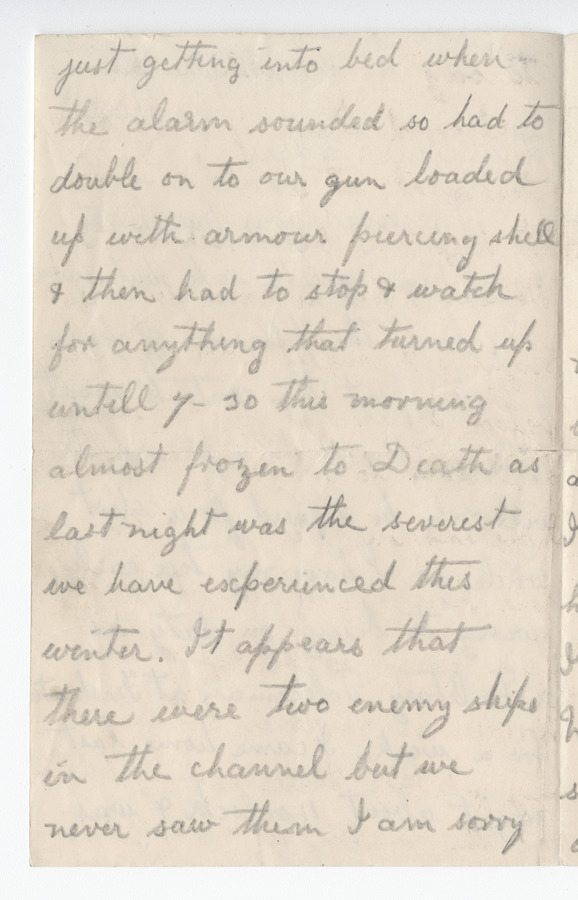 just getting into bed when
the alarm sounded so had to
double on to our gun loaded
up with armour piercing shell
& then had to stop & watch
for anything that turned up
untill 7-30 this morning
almost frozen to Death as
last night was the severest
we have experienced this
winter. It appears that
there were two enemy ships
in the channel but we
never saw them I am sorry